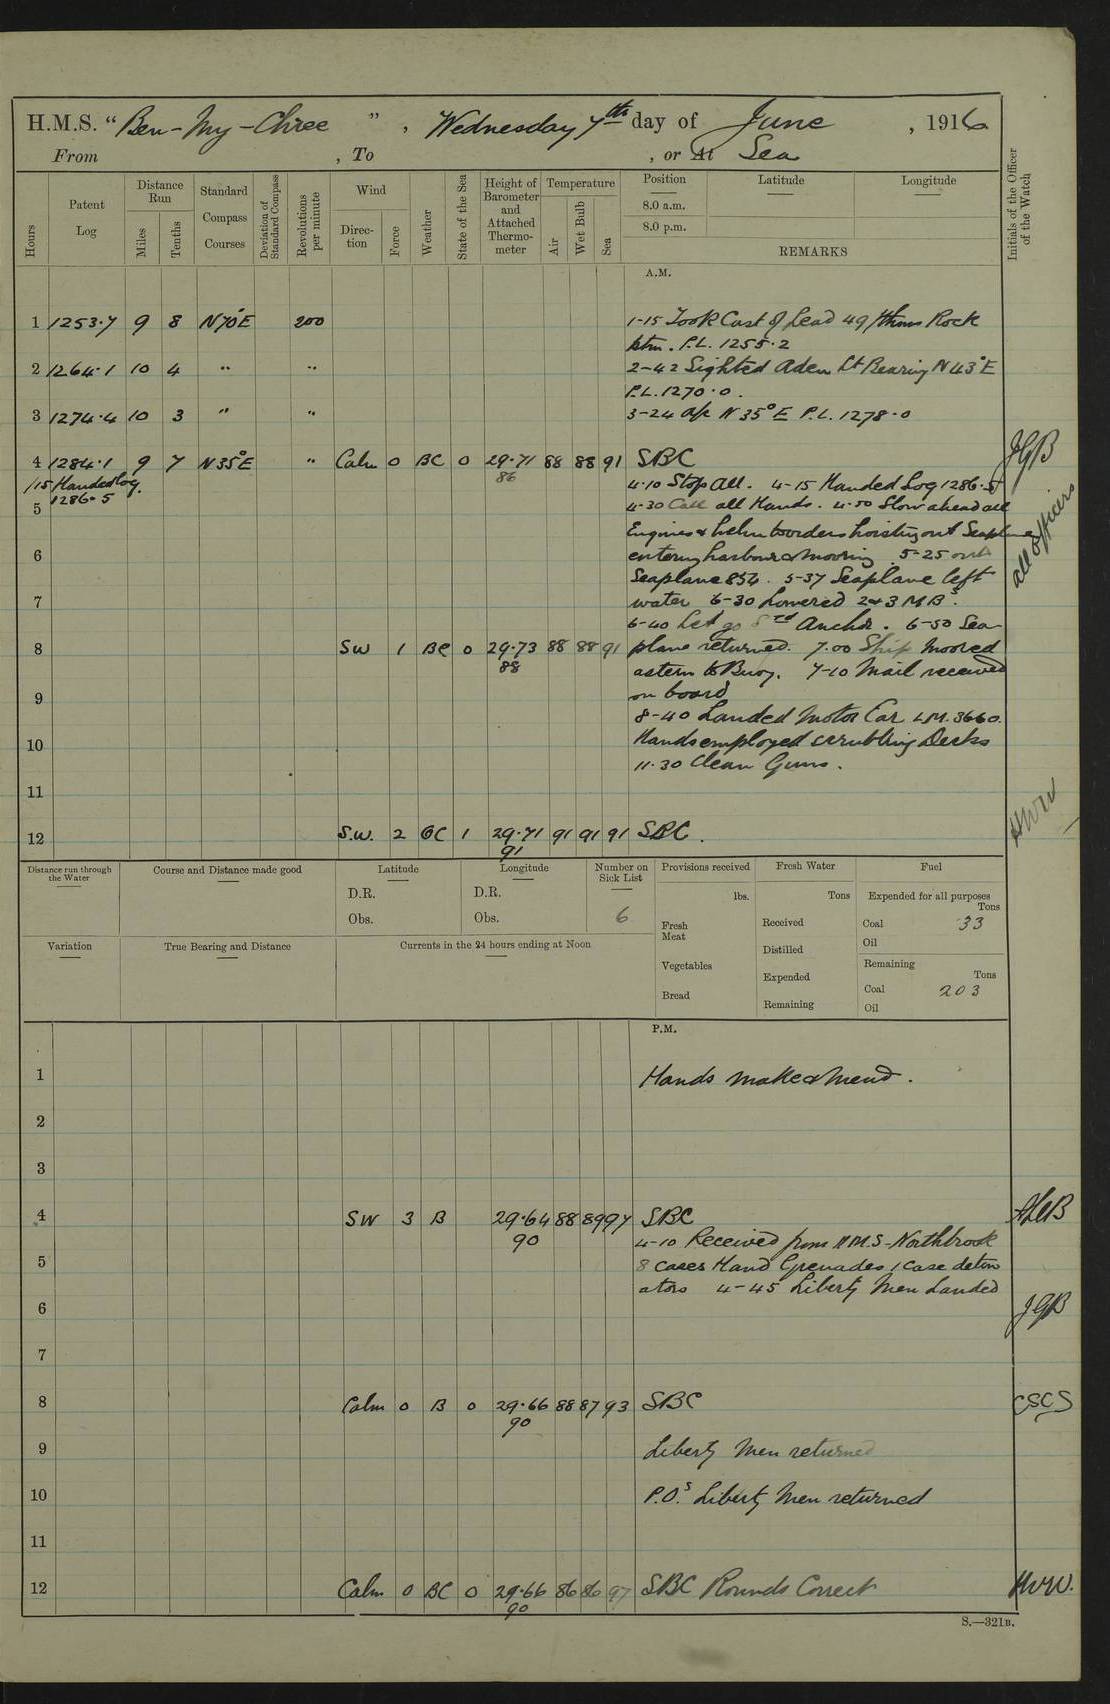 H.M.S. "Ben-My-Chree", Wednesday 7th day of June, 1916
From , To , or At Sea
Hours
Patent Log
Distance Run
Miles
Tenths
Standard Compass Courses
Deviation of Standard Compass
Revolutions per minute
Wind
Direction
Force
Weather
State of the Sea
Height of Barometer and Attached Thermometer
Temperature
Air
Wet Bulb
Sea
Position
Latitude
Longitude
8.0 a.m.
8.0 p.m.
REMARKS
Initials of the Officer of the Watch
A.M.
1 1253.7 9 8 N70°E 200 1-15 Took Cast of Lead 49 fthms Rock
btm. P.L. 1255.2
2 1264.1 10 4 " " 2-42 Sighted Aden Lt Bearing N43°E
P.L. 1270.0.
3 1274.4 10 3 " " 3-24 a/c N35°E P.L. 1278.0
4 1284.1 9 7 N35°E " Calm 0 BC 0 29.71 88 88 91 SBC JGB
86
/15 Handed Log. 4-10 Stop All. 4-15 Handed Log 1286.5
1286.5
5 4-30 Call all Hands. 4-50 Slow ahead all
Engines & helm to orders hoisting out Seaplane
6 entering harbour & mooring. 5-25 out all officers
Seaplane 854. 5-37 Seaplane left
7 water 6-30 Lowered 2 & 3 MBs.
6-40 Let go Anchor. 6-50 Sea-
8 SW 1 BC 0 29.73 88 88 91 plane returned. 7.00 Ship Moored
88 astern to Buoy. 7-10 Mail received
9 on board
8-40 Landed Motor Car LM.3660.
10 Hands employed scrubbing Decks
11.30 Clean Guns.
11
12 S.W. 2 BC 1 29.71 91 91 91 SBC. HWW
91
Distance run through the Water
Course and Distance made good
Latitude
D.R.
Obs.
Longitude
D.R.
Obs.
Number on Sick List
6
Provisions received
lbs.
Fresh Meat
Vegetables
Bread
Fresh Water
Tons
Received
Distilled
Expended
Remaining
Fuel
Expended for all purposes
Tons
Coal 33
Oil
Remaining
Tons
Coal 203
Oil
Variation
True Bearing and Distance
Currents in the 24 hours ending at Noon
P.M.
1 Hands make & mend.
2
3
4 SW 3 B 29.64 88 89 97 SBC
90 4-10 Received from H.M.S-Northbrook
5 8 cases Hand Grenades 1 case deton
ators 4-45 Liberty Men Landed
6 JGB
7
8 Calm 0 B 0 29.66 88 87 93 SBC CSCS
90
9 Liberty Men returned
10 P.O.s Liberty Men returned
11
12 Calm 0 BC 0 29.66 86 86 97 SBC Rounds Correct HWW.
90
S.—321B.